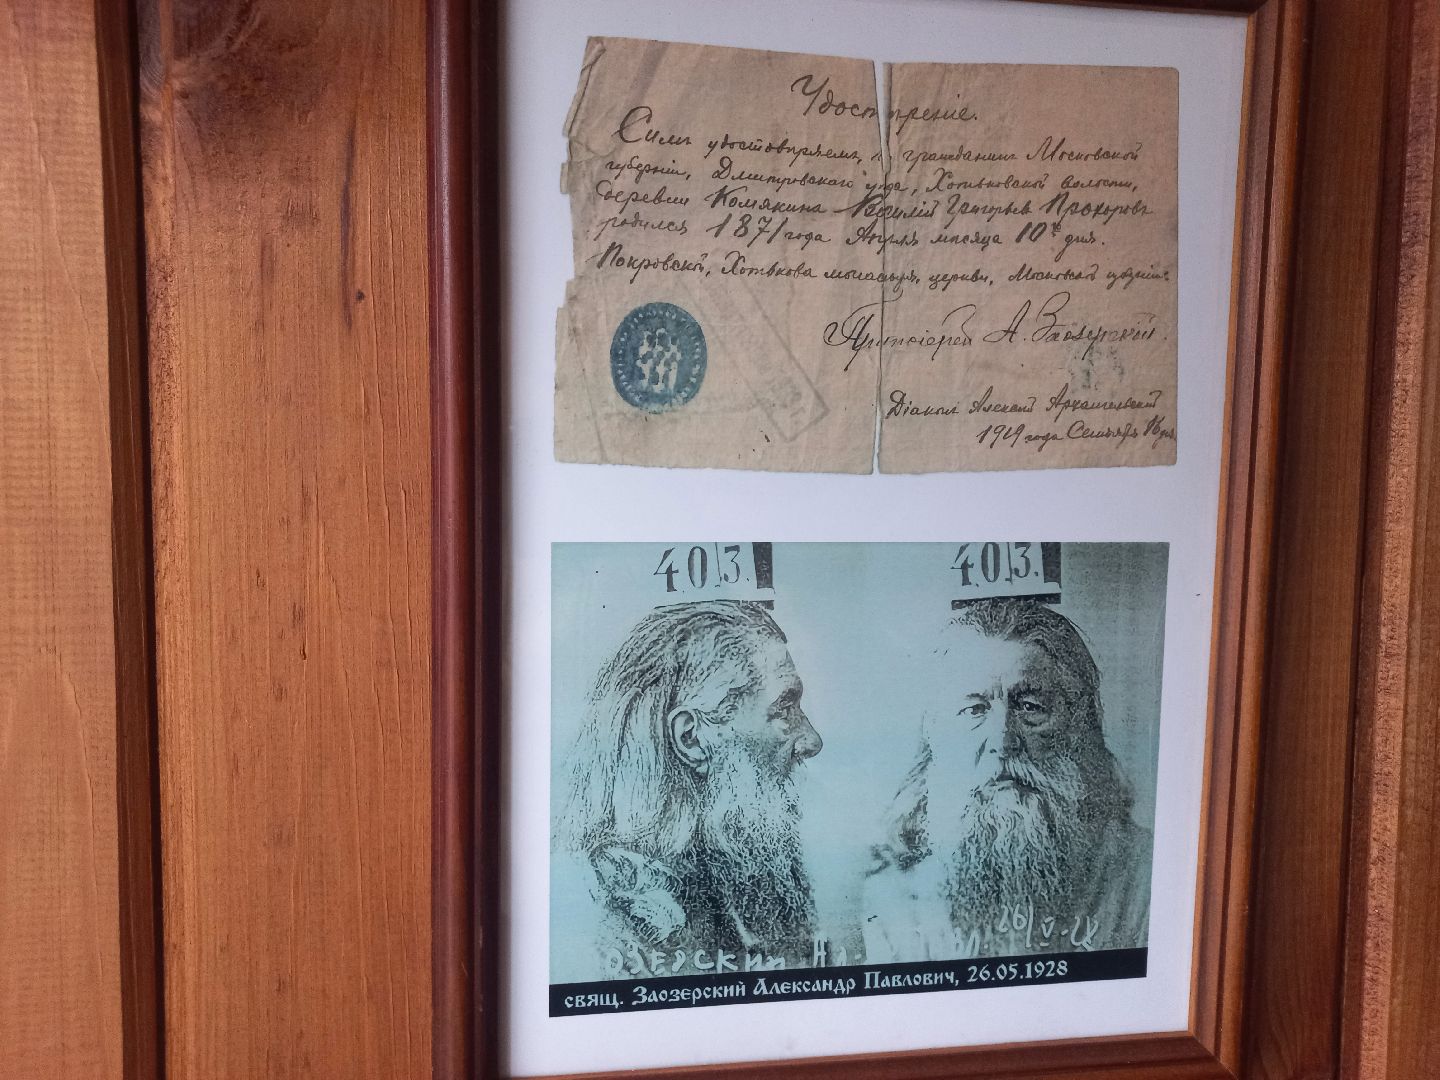 Удостовѣреніе.
Симъ удостовѣряемъ, гражданинъ Московской
губерніи, Дмитровскаго уѣзда, Хотьковской волости,
деревни Комякина Василій Григорьев Прохоровъ
родился 1871 года Апрѣля мѣсяца 10го дня.
Покровской, Хотькова монастыря, церкви, Московской
Протоіерей А. Заозерскій.
Діаконъ Алексѣй Архангельскій
1919 года Сентября 16 дня
403.
403.
озерский Ал.
26/V-28
свящ. Заозерский Александр Павлович, 26.05.1928